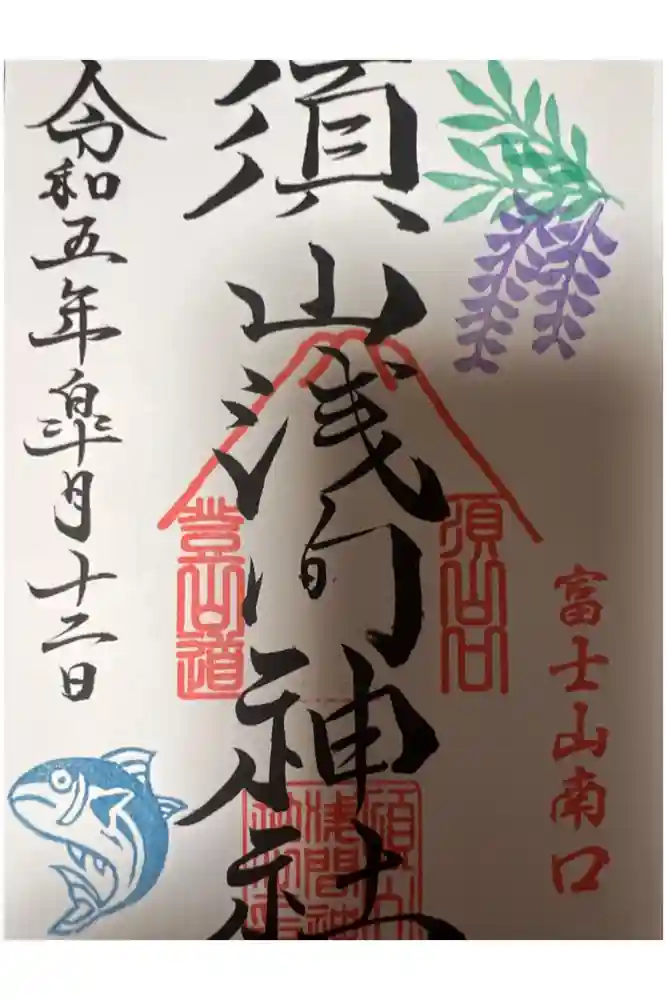 富士山南口
須山浅間神社
須山口
登山道
令和五年皐月十二日